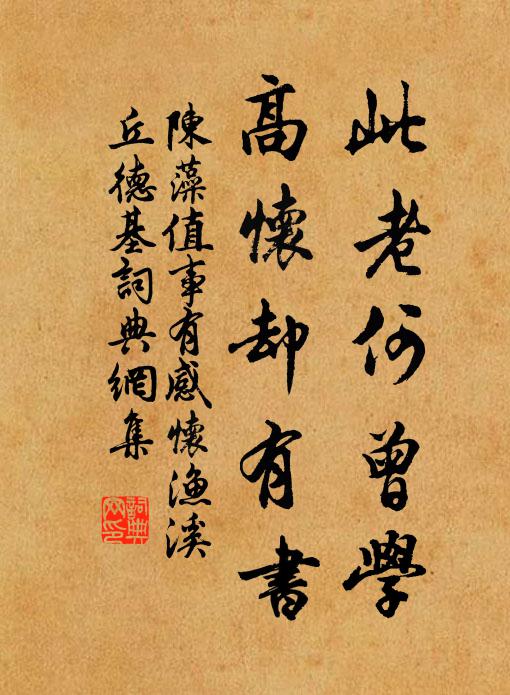 此老何曾學
高懷却有書
陳藻值事有感懷漁溪
丘德基詞典網集
詞典
网印